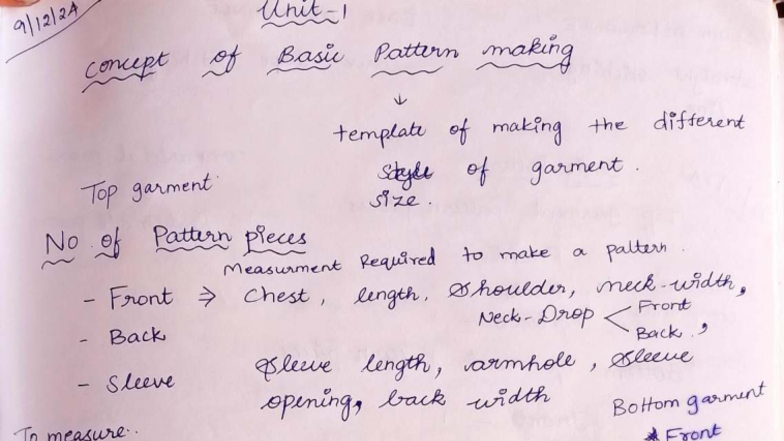 9/12/24
Unit-1
concept of Basic Pattern making
↓
template of making the different
style of garment.
size.
Top garment
No of Pattern pieces
Measurment Required to make a pattern.
- Front ⇒ Chest, length, shoulder, neck-width,
Neck-Drop < Front
Back,
- Back
- Sleeve
Sleeve length, armhole, sleeve
opening, back width
Bottom garment
* Front
To measure..